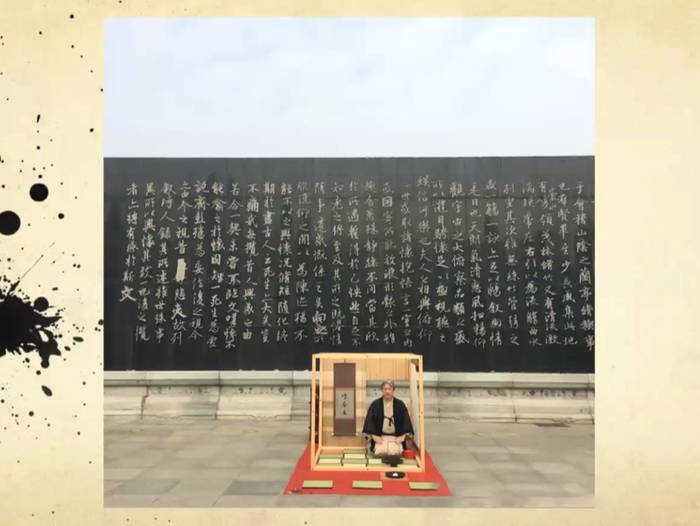 于會稽山陰之蘭亭脩禊事
也群賢畢至少長咸集此地
有崇山峻領茂林脩竹又有清流激
湍暎帶左右引以為流觴曲水
列坐其次雖無絲竹管弦之
盛一觴一詠亦足以暢敘幽情
是日也天朗氣清惠風和暢仰
觀宇宙之大俯察品類之盛
所以遊目騁懷足以極視聽之
娛信可樂也夫人之相與俯仰
一世或取諸懷抱悟言一室之內
或因寄所託放浪形骸之外雖
趣舍萬殊靜躁不同當其欣
於所遇蹔得於己怏然自足不
知老之將至及其所之既惓情
隨事遷感慨係之矣向之所
欣俛仰之閒以為陳迹猶不
能不以之興懷況脩短隨化終
期於盡古人云死生亦大矣豈
不痛哉每攬昔人興感之由
若合一契未嘗不臨文嗟悼不
能喻之於懷固知一死生為虛
誕齊彭殤為妄作後之視今
亦由今之視昔悲夫故列
敘時人錄其所述雖世殊事
異所以興懷其致一也後之攬
者亦將有感於斯文